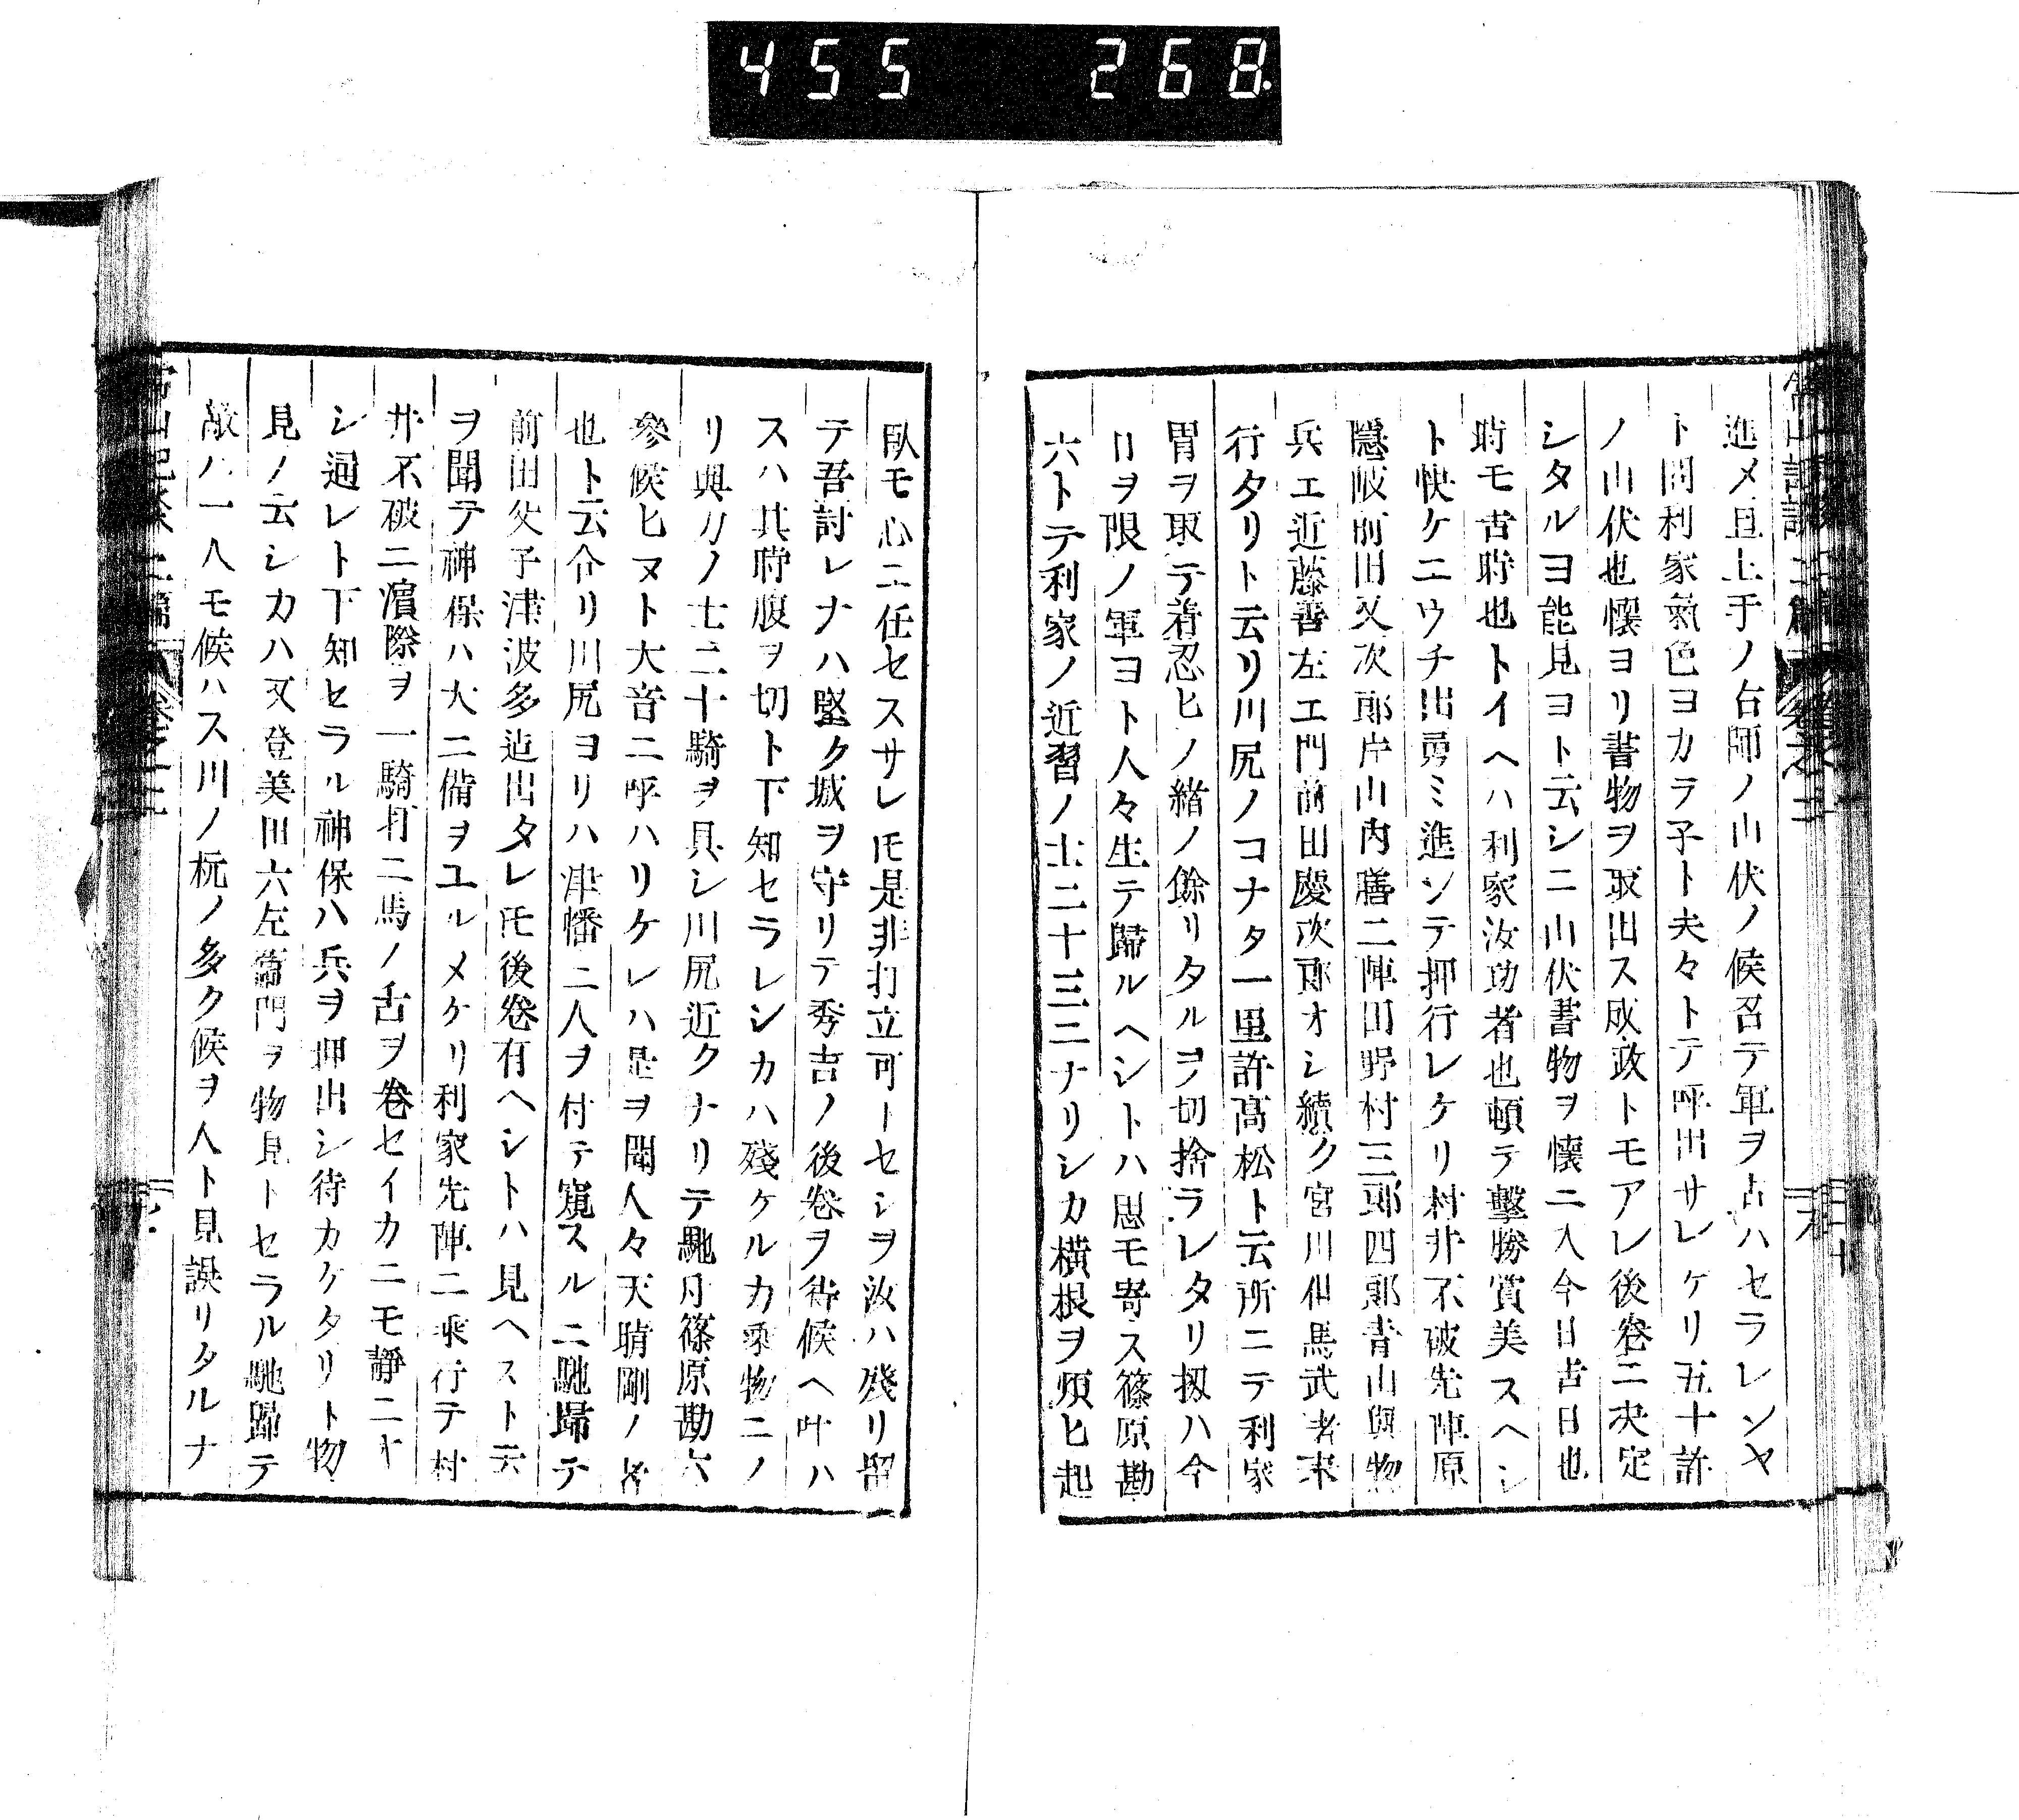 455 268
進メ且上手ノ占師ノ山伏ノ候召テ軍ヲ占ハセラレンヤ
ト問利家氣色ヨカラ子ト夫々トテ呼出サレケリ五十許
ノ山伏也懷ヨリ書物ヲ取出ス成政トモアレ後卷ニ决定
シタルヨ能見ヨト云シニ山伏書物ヲ懷ニ入今日吉日也
時モ吉時也トイヘハ利家汝功者也頓テ擊勝賞美スヘシ
ト快ケニウチ出勇ミ進ンテ押行レケリ村井不破先陣原
隱岐前田又次郎片山内膳二陣田野村三郎四郎青山與惣
兵エ近藤善左エ門前田慶次郎オシ續ク宮川但馬武者末
行タリト云リ川尻ノコナタ一里許髙松ト云所ニテ利家
胃ヲ取テ着忍ヒノ緒ノ餘リタルヲ切捨ラレタリ扨ハ今
日ヲ限ノ軍ヨト人々生テ歸ルヘシトハ思モ寄ス篠原勘
六トテ利家ノ近習ノ士二十三ニナリシカ横根ヲ煩ヒ起
臥モ心ニ任セスサレ𪜈是非打立可ーセシヲ汝ハ殘リ留
テ吾討レナハ堅ク城ヲ守リテ秀吉ノ後卷ヲ待候ヘ叶ハ
スハ其時腹ヲ切ト下知セラレシカハ殘ケルカ乘物ニノ
リ與力ノ士二十騎ヲ具シ川尻近クナリテ馳付篠原勘六
參候ヒヌト大音ニ呼ハリケレハ是ヲ聞人々天晴剛ノ者
也ト云合リ川尻ヨリハ津幡二人ヲ付テ窺スルニ馳歸テ
前田父子津波多迠出タレ𪜈後卷有ヘシトハ見ヘスト云
ヲ聞テ神保ハ大ニ備ヲユルメケリ利家先陣ニ乘行テ村
井不破ニ濵際ヲ一騎打ニ馬ノ舌ヲ卷セイカニモ靜ニヤ
シ通レト下知セラル神保ハ兵ヲ押出シ待カケタリト物
見ノ云シカハ又登美田六左衞門ヲ物見トセラル馳歸テ
敵ハ一人モ候ハス川ノ杭ノ多ク候ヲ人ト見誤リタルナ